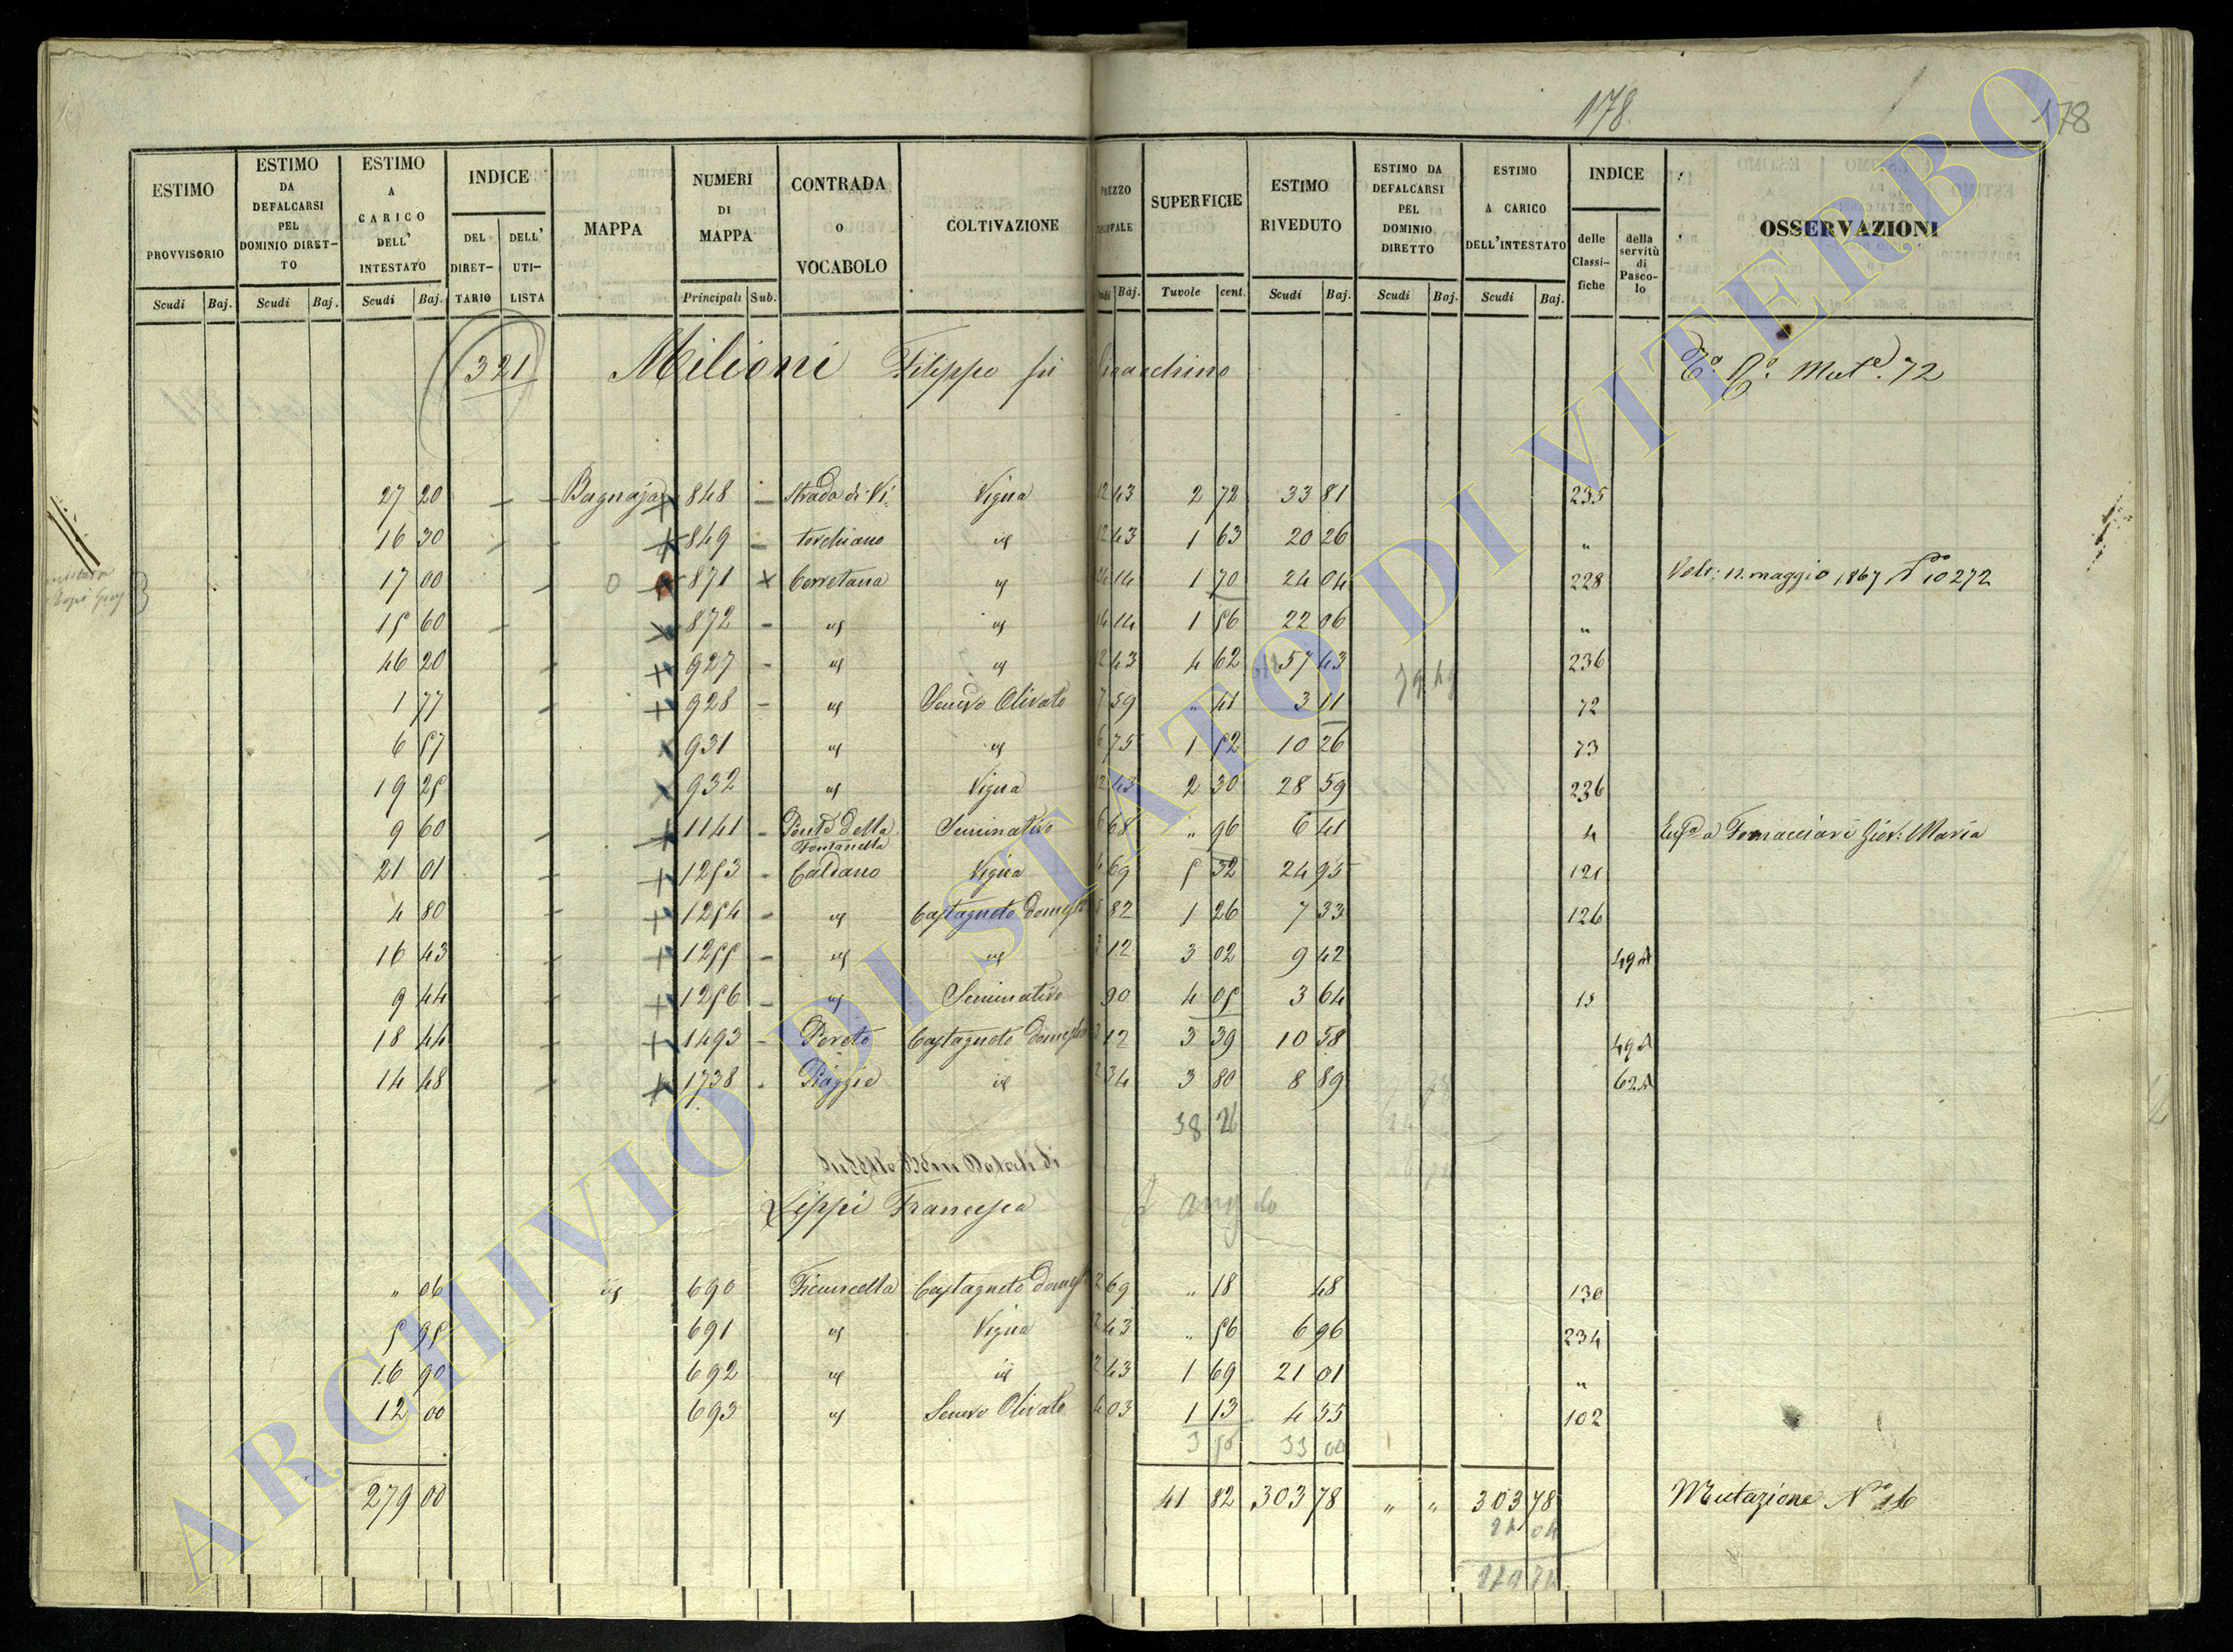 178
178
ESTIMO PROVVISORIO
ESTIMO DA DEFALCARSI PEL DOMINIO DIRET-TO
ESTIMO A CARICO DELL' INTESTATO
INDICE
DEL DIRET-TARIO
DELL' UTI-LISTA
MAPPA
NUMERI DI MAPPA
CONTRADA o VOCABOLO
COLTIVAZIONE
PREZZO
SUPERFICIE
ESTIMO RIVEDUTO
ESTIMO DA DEFALCARSI PEL DOMINIO DIRETTO
ESTIMO A CARICO DELL'INTESTATO
INDICE
delle Classi-fiche
della servitù di Pasco-lo
OSSERVAZIONI
Scudi Baj. Scudi Baj. Scudi Baj. Principali Sub. Baj. Tavole cent. Scudi Baj. Scudi Baj. Scudi Baj.
321 Milioni Filippo fu Gioacchino Mut. 72
27 20 Bagnaja 848 Strada di Vi- Vigna 12 43 2 72 33 81 235
16 30 849 torchiano id 12 43 1 63 20 26 "
17 00 871 Cerretana id 14 14 1 70 24 04 228 maggio 1867 N 10272
15 60 872 id id 14 14 1 56 22 06 "
46 20 927 id id 12 43 4 62 57 43 236
1 77 928 id Semvo Olivato 7 59 " 41 3 11 72
6 57 931 id id 6 75 1 52 10 26 73
19 25 932 id Vigna 12 43 2 30 28 59 236
9 60 1141 Ponte della Fontanella Seminativo 6 68 " 96 6 41 4 a Fornacciari Giov: Maria
21 01 1253 Caldano Vigna 4 69 5 32 24 95 121
4 80 1254 id Castagneto domest 5 82 1 26 7 33 126
16 43 1255 id id 3 12 3 02 9 42 49
9 44 1256 id Seminativo 90 4 05 3 64 15
18 44 1493 Poreto Castagneto domest 3 12 3 39 10 58 49
14 48 1738 Piaggie id 2 34 3 80 8 89 62
38 26
Dotali di
Lippi Francesca
" 06 id 690 Ficuncella Castagneto domest 2 69 " 18 48 130
5 95 691 id Vigna 12 43 " 56 6 96 234
16 90 692 id id 12 43 1 69 21 01 "
12 00 693 id Semvo Olivato 4 03 1 13 4 55 102
3 56 33 00
279 00 41 82 303 78 " " 303 78 Mutazione N 16
24 04
279 74
ARCHIVIO DI STATO DI VITERBO